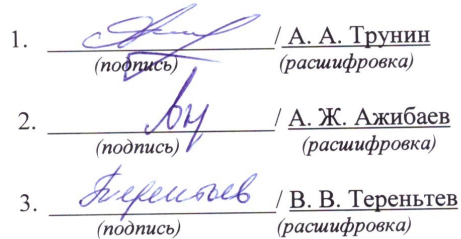 1. / А. А. Трунин
(подпись) (расшифровка)
2. / А. Ж. Ажибаев
(подпись) (расшифровка)
3. Терентьев / В. В. Тереньтев
(подпись) (расшифровка)